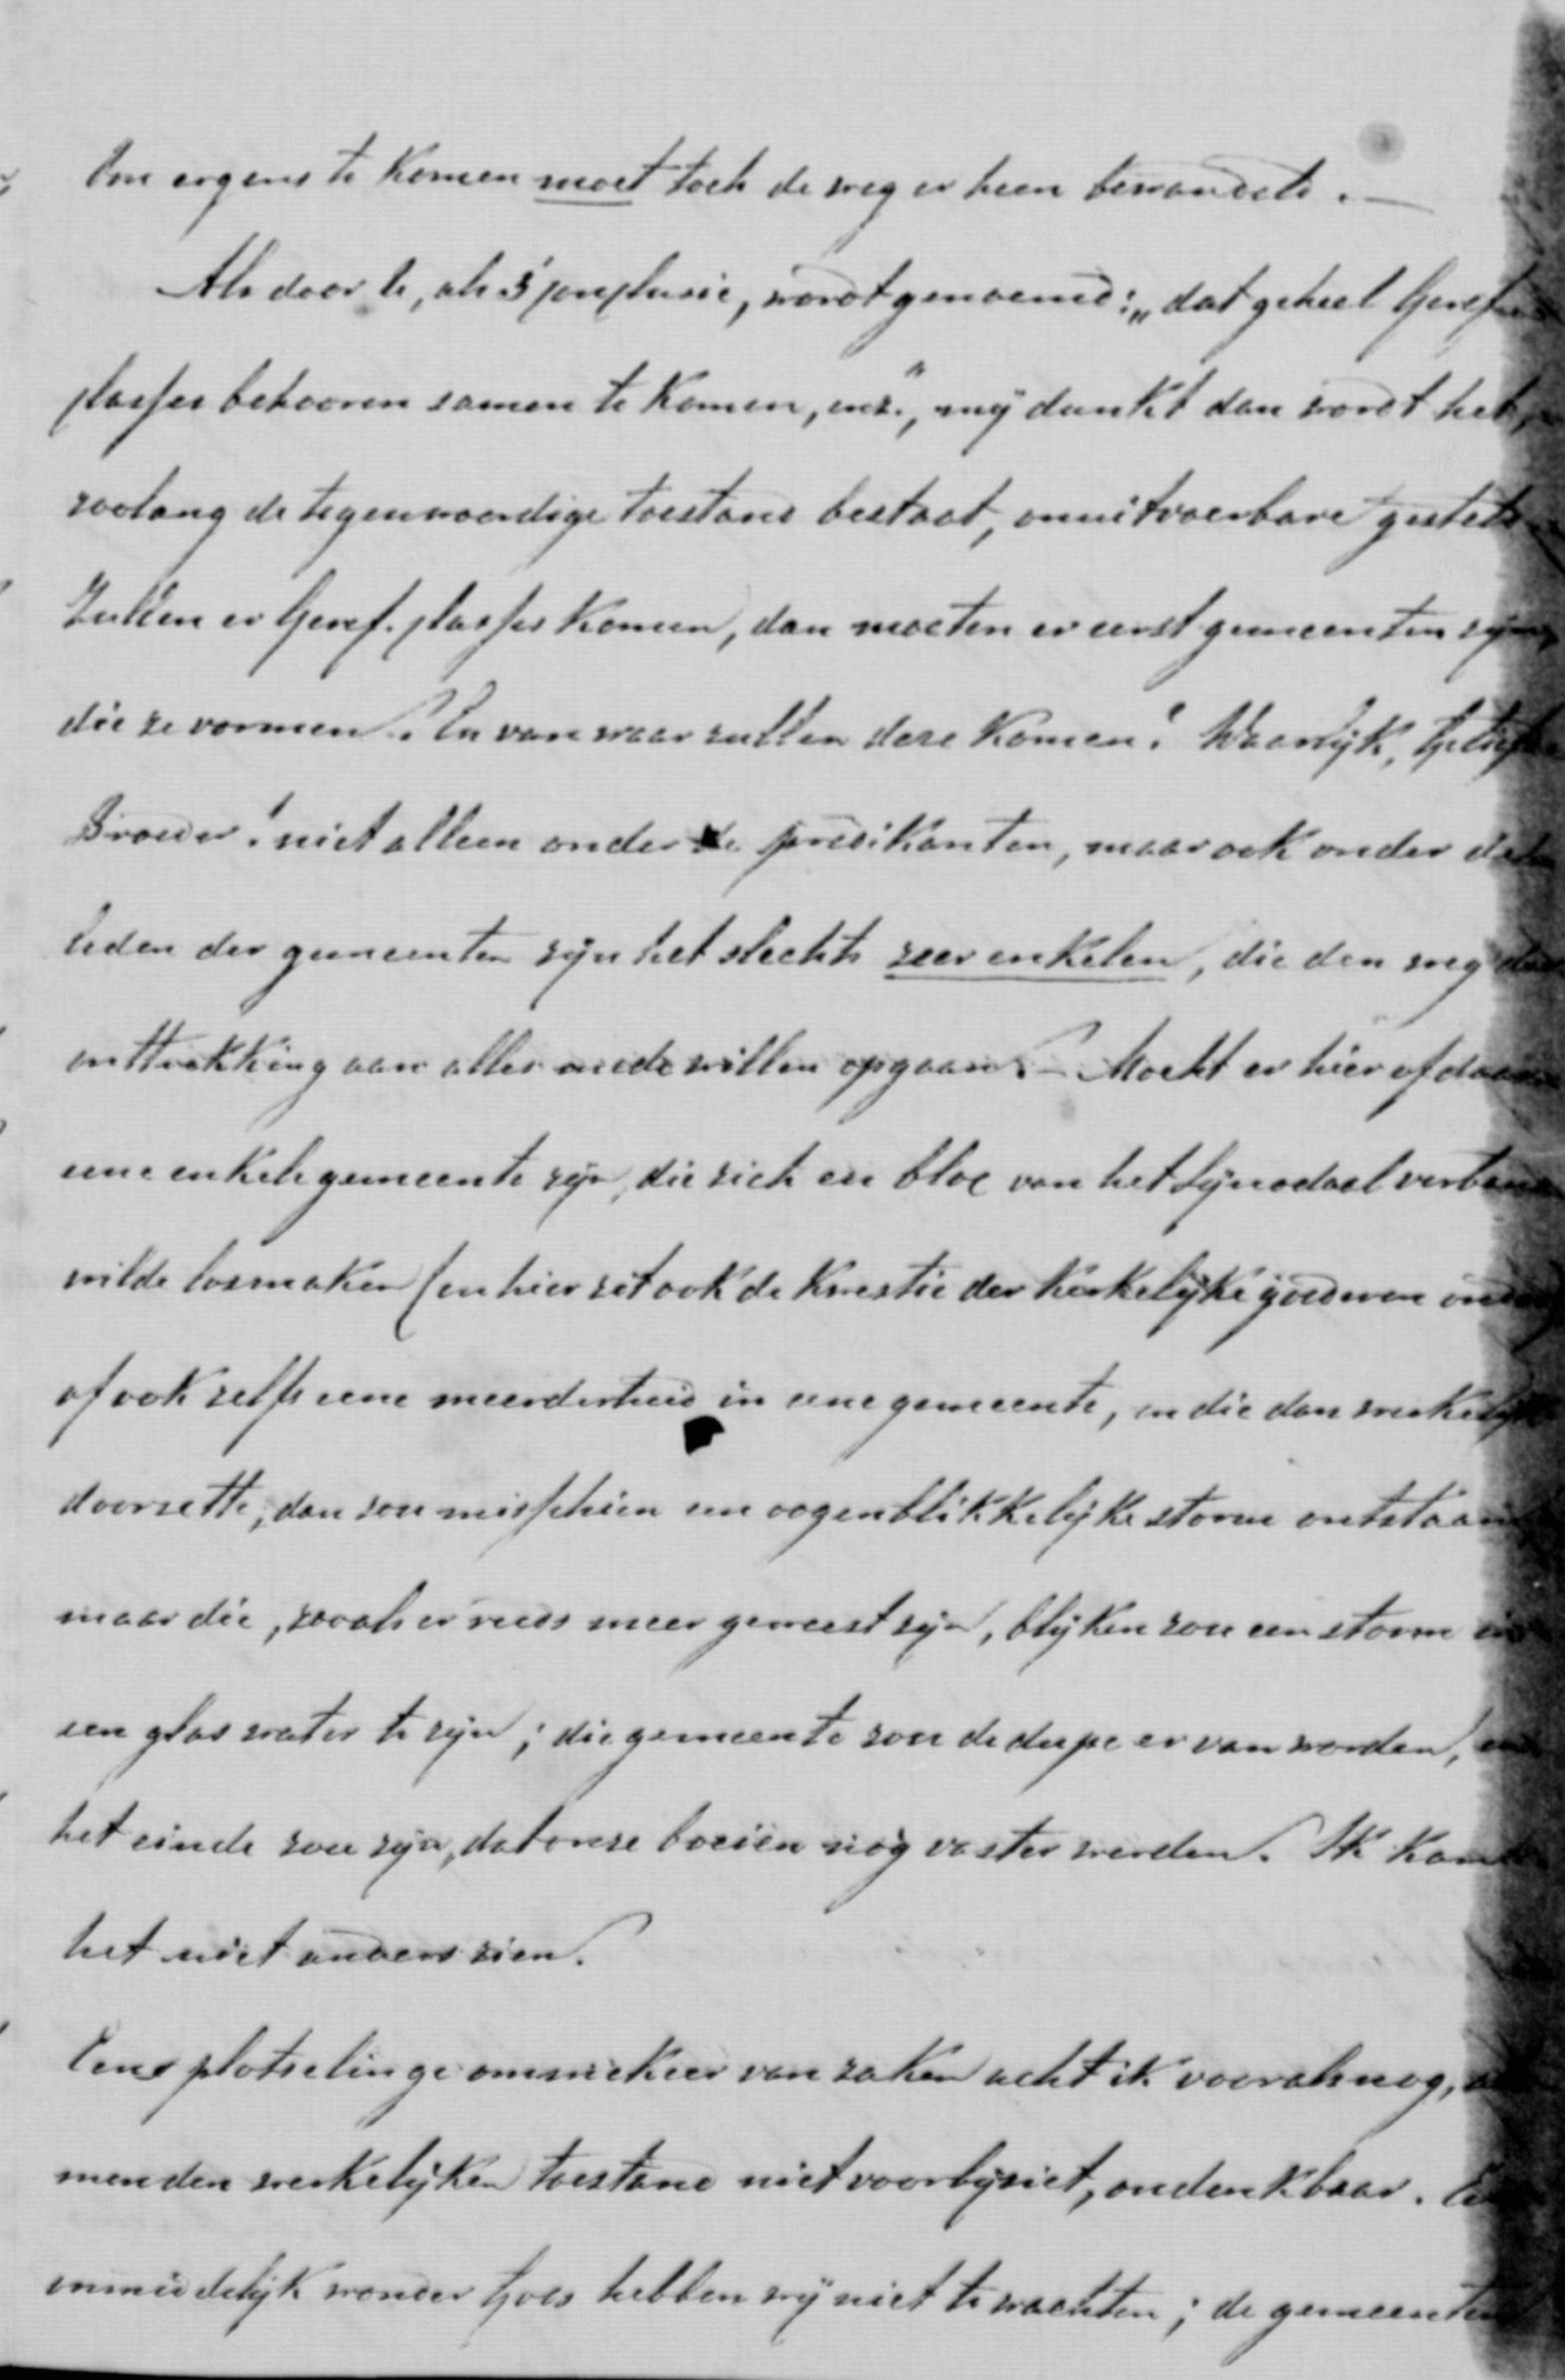 Om ergens te komen moet toch de weg er heen bewandeld. —
Als door U, als 3e conclusie, wordt genoemd: „dat geheel Geref.
classes behooren samen te komen, enz.", mij dunkt dan wordt het,
zoolang de tegenwoordige toestand bestaat, onuitvoerbare gesteld
Zullen er Geref. classes komen, dan moeten er eerst gemeenten zijn,
die ze vormen. En van waar zullen deze komen? Waarlijk, Geliefde
Broeder! niet alleen onder de predikanten, maar ook onder de
leden der gemeenten zijn het slechts zeer enkelen, die den weg der
onttrekking aan alles mede willen opgaan. — Mocht er hier of daar
eene enkele gemeente zijn, die zich en bloc van het Synodaal verband
wilde losmaken (en hier zit ook de kwestie der kerkelijke goederen onder
of ook zelfs eene meerderheid in eene gemeente, en die dan werkelijk
doorzette, dan zou misschien een oogenblikkelijke storm ontstaan
maar die, zooals er reeds meer geweest zijn, blijken zou een storm in
een glas water te zijn; die gemeente zou de dupe er van worden, en
het einde zou zijn, dat onze boeien nog vaster werden. Ik kan
het niet anders zien.
Eene plotselinge ommekeer van zaken acht ik vooralsnog, als
men den werkelijken toestand niet voorbijziet, ondenkbaar. Een
onmiddelijk wonder Gods hebben wij niet te wachten; de gemeenten